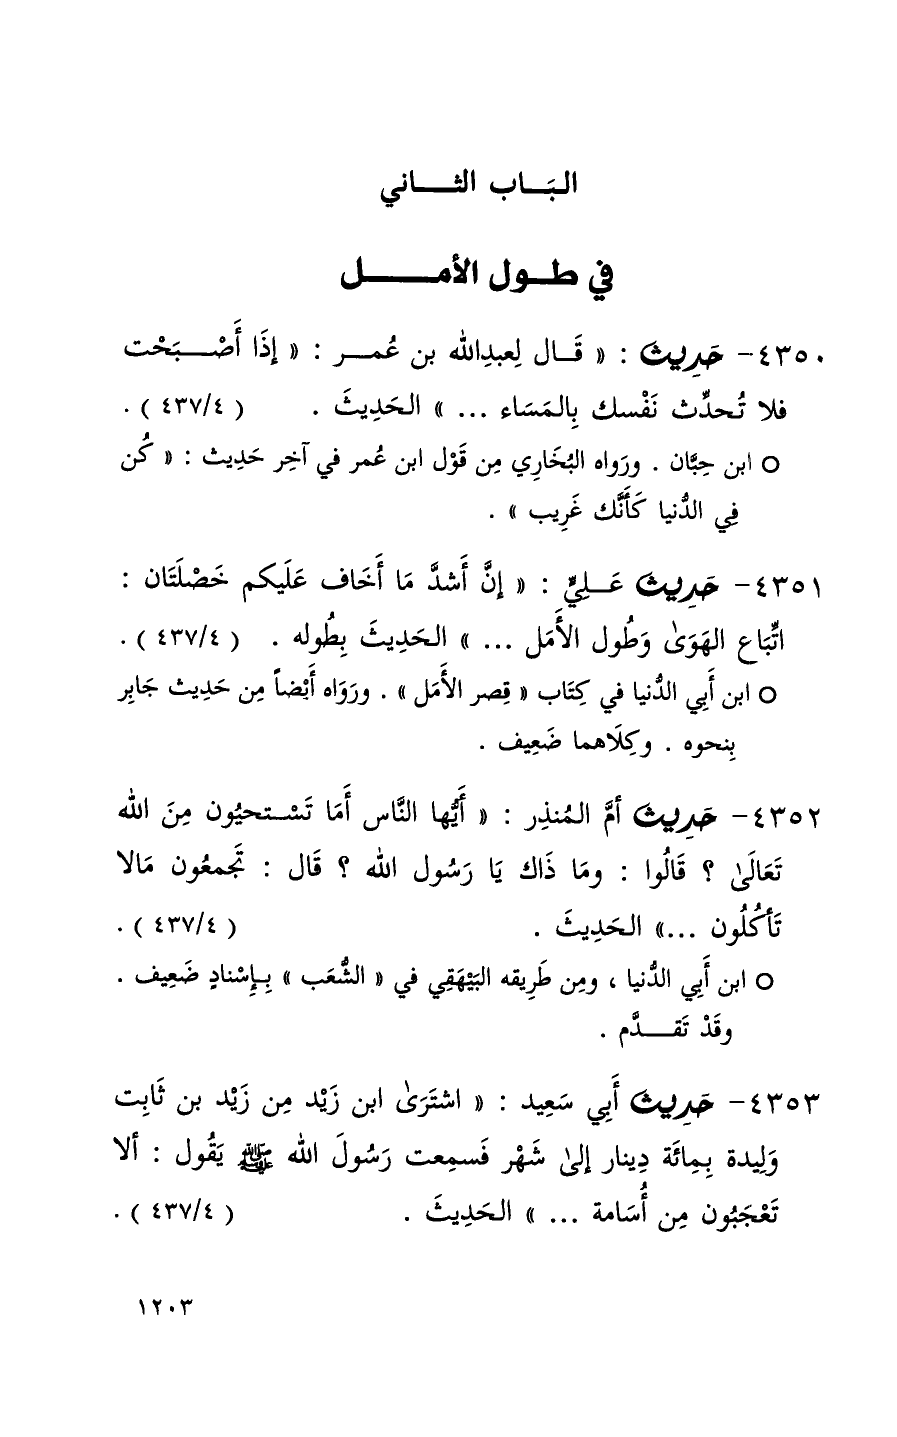 البَـاب الثـــاني
في طـول الأمـــــل
٤٣٥٠- حَدِيث : « قَــال لِعبدِالله بن عُمــر : « إِذَا أَصْـــبَحْت
فلا تُـحدِّث نَفْسك بِالـمَسَاء ... » الـحَدِيثَ . ( ٤٣٧/٤ ) .
○ ابن حِبَّان . ورَواه البُخَارِي مِن قَوْل ابن عُمر في آخِر حَدِيث : « كُن
فِي الدُّنيا كَأَنَّك غَرِيب » .
٤٣٥١- حَدِيث عَــلِيٍّ : « إِنَّ أَشدَّ مَا أَخَاف عَلَيكم خَصْلَتَان :
اتِّبَاع الهَوَىٰ وَطُول الأَمَل ... » الـحَدِيثَ بِطُوله . ( ٤٣٧/٤ ) .
○ ابن أَبِي الدُّنيا في كِتَاب « قِصر الأَمَل » . ورَوَاه أَيْضاً مِن حَدِيث جَابِر
بِنحوه . وكِلَاهما ضَعِيف .
٤٣٥٢- حَدِيث أمَّ الـمُنذِر : « أَيُّها النَّاس أَمَا تَسْـتحيُون مِنَ الله
تَعَالَىٰ ؟ قَالُوا : ومَا ذَاك يَا رَسُول الله ؟ قَال : تَجمعُون مَالا
تَأكُلُون ...» الـحَدِيثَ . ( ٤٣٧/٤ ) .
○ ابن أَبِي الدُّنيا ، ومِن طَرِيقه البَيْهَقِي في « الشُّعَب » بِـإِسْنادٍ ضَعِيف .
وقَدْ تَقـــدَّم .
٤٣٥٣- حَدِيث أَبِي سَعِيد : « اشتَرَىٰ ابن زَيْد مِن زَيْد بن ثَابِت
وَلِيدة بِـمِائَة دِينار إلىٰ شَهْر فَسمِعت رَسُولَ الله ﷺ يَقُول : ألا
تَعْجَبُون مِن أُسَامة ... » الـحَدِيثَ . ( ٤٣٧/٤ ) .
١٢٠٣